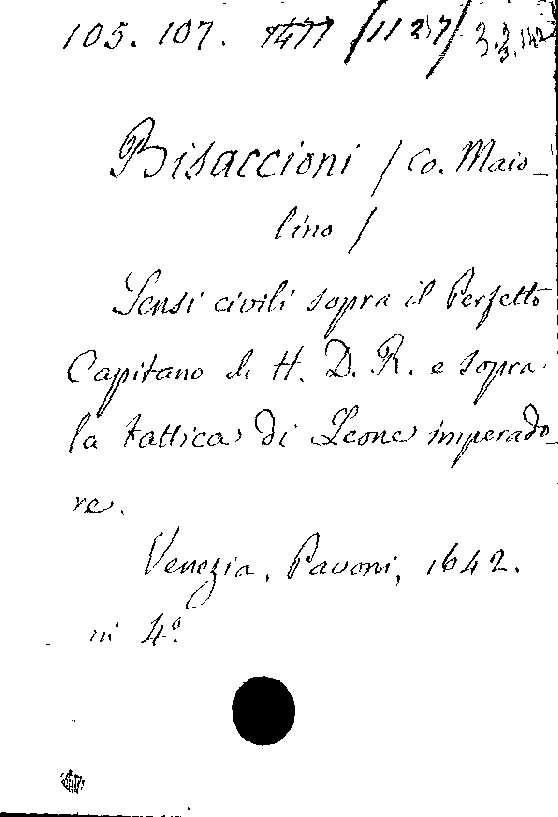 105. 107. 1477 (11237) 3.3.142
Bisaccioni / Co. Maio-
lino /
Sensi civili sopra il Perfetto
Capitano di H. D. R. e sopra
la tattica di Leone imperado-
re.
Venezia, Pavoni, 1642.
in 4º